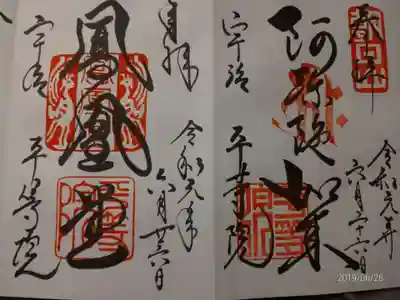 奉拝
令和元年
六月二十六日
阿弥陀如来
宇治 平等院
奉拝
令和元年
六月廿六日
鳳凰堂
宇治 平等院
2019/06/26